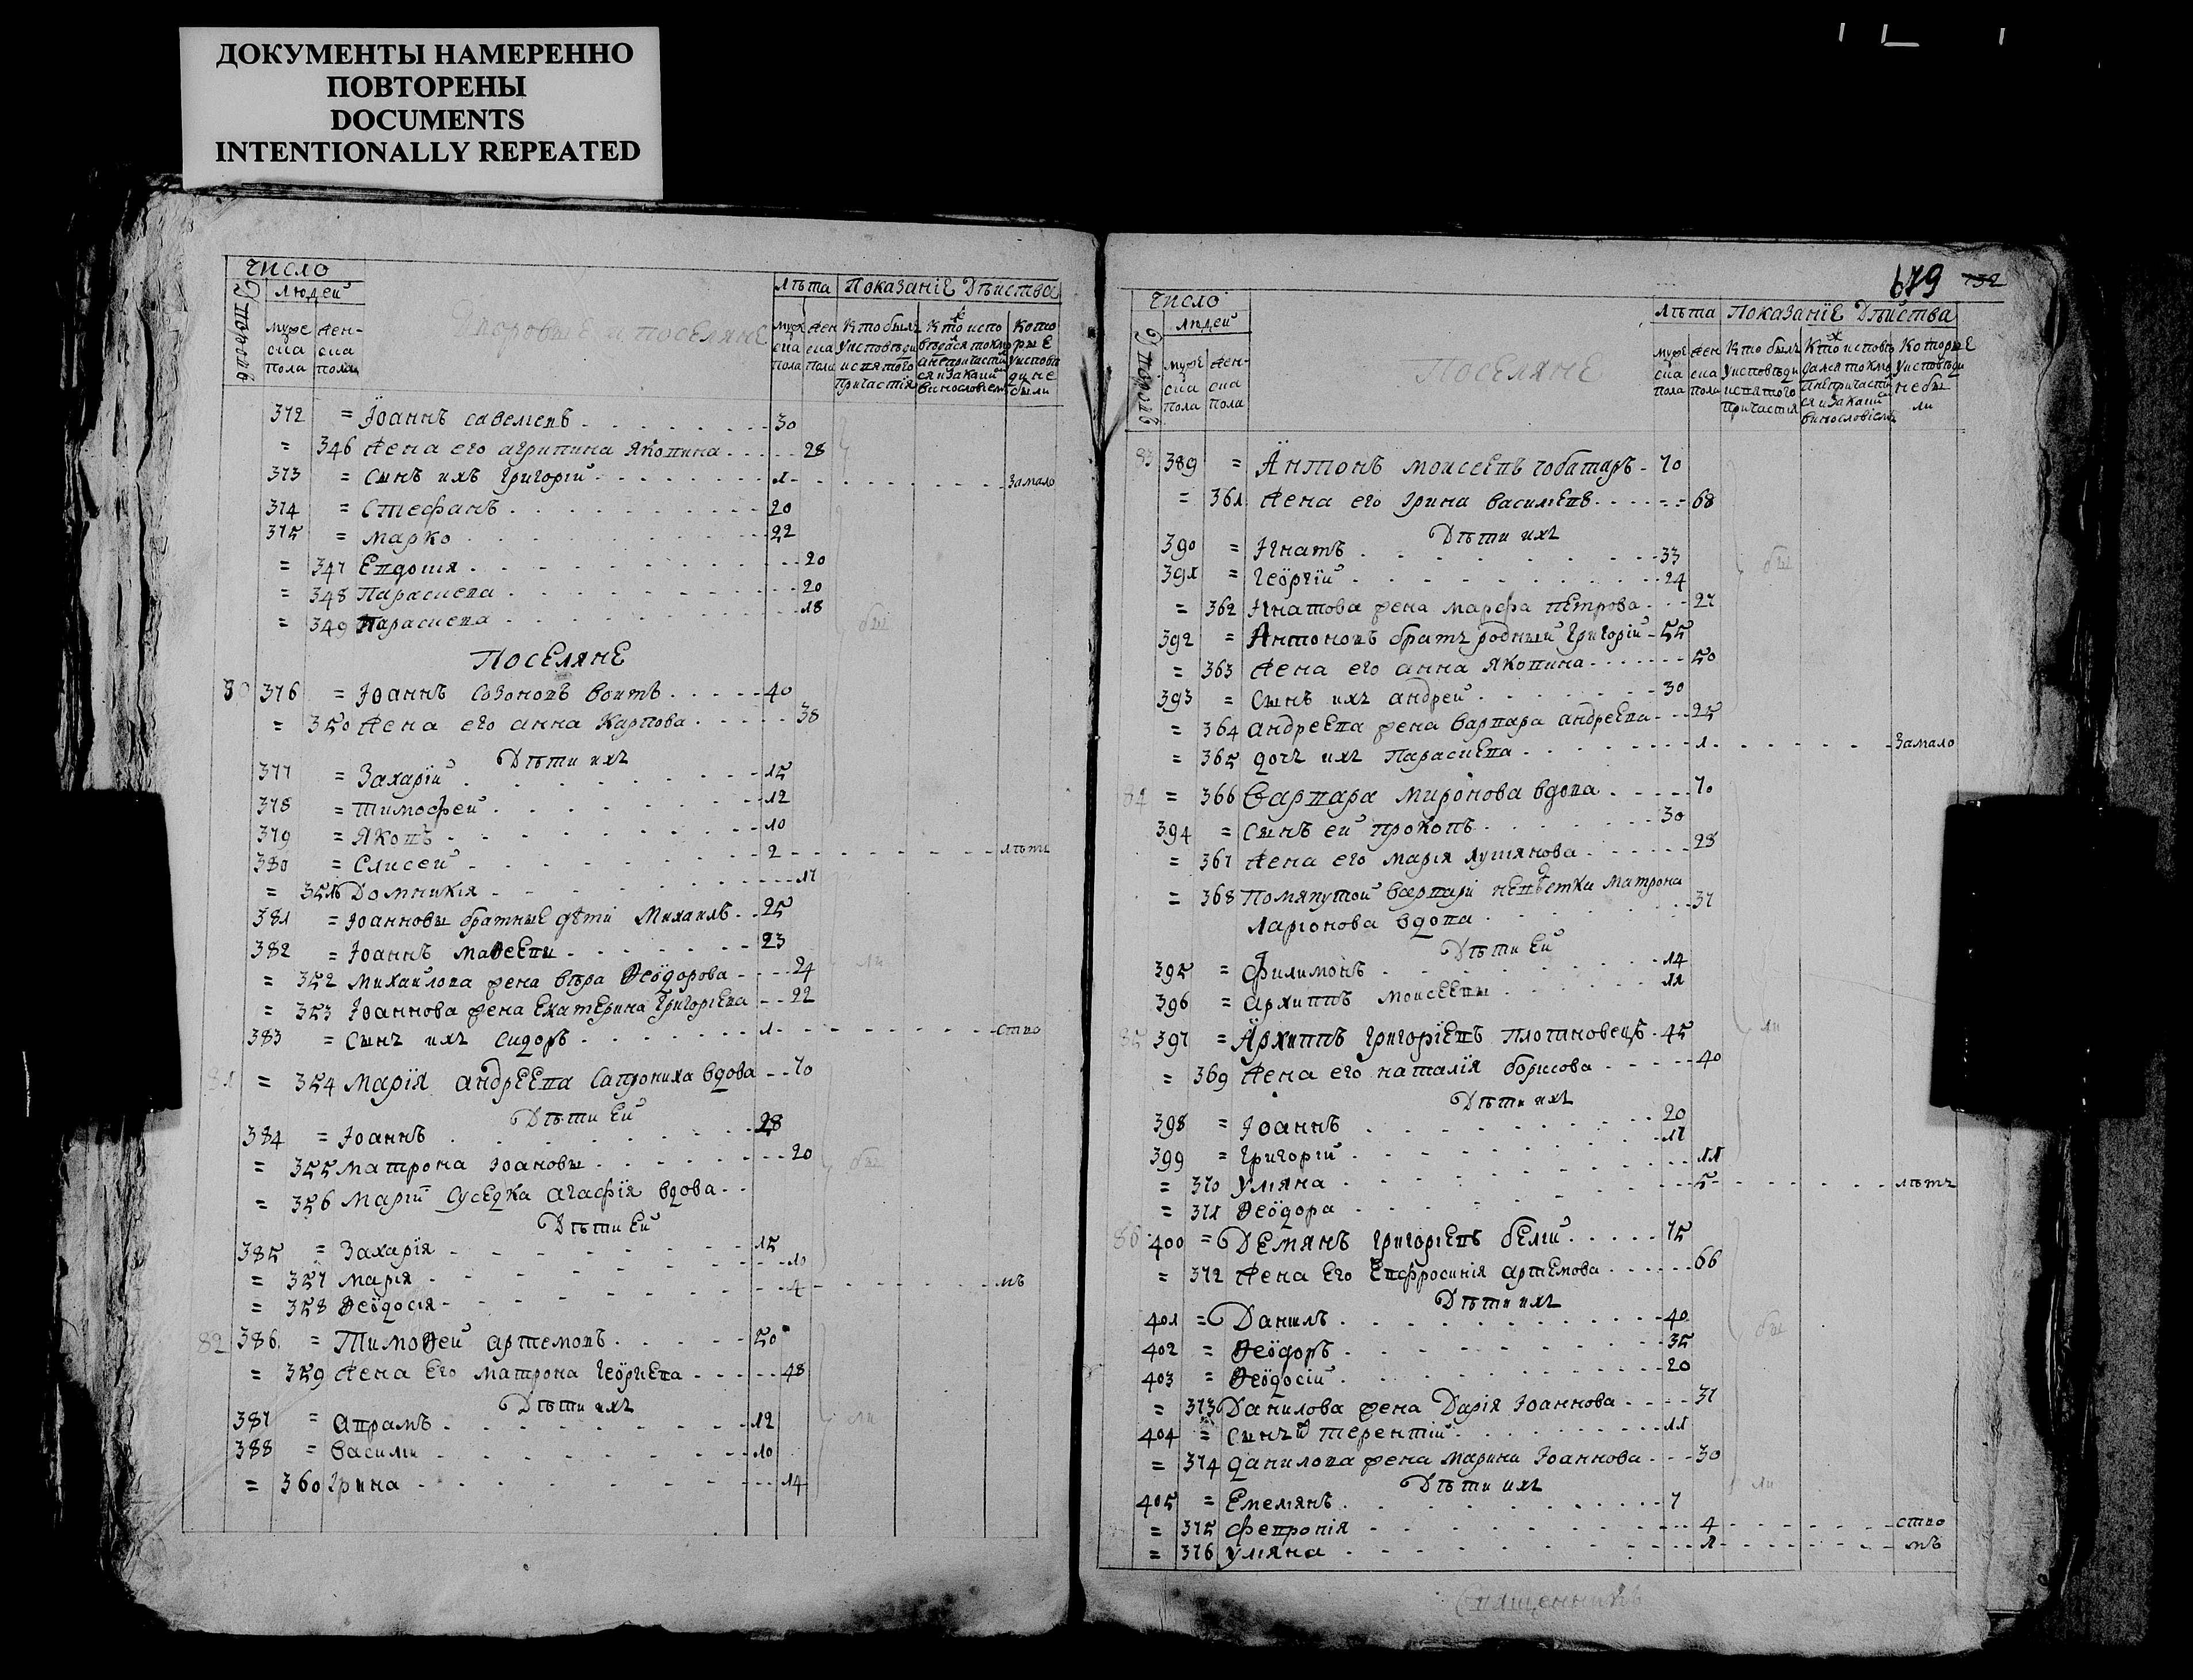 ДОКУМЕНТЫ НАМЕРЕННО
ПОВТОРЕНЫ
DOCUMENTS
INTENTIONALLY REPEATED
Число
людей
Дворовъ
муже ска пола
жен- ска пола
Дворовые и поселяне
Лѣта
Показаніе Дѣйства
муже ска пола
жен ска пола
Кто былъ у исповѣди и святого причастія
Которые у исповѣди не были
372 = Іоаннъ савелievъ 30
= 346 жена его агрипина Яковлева 28
373 = Сынъ ихъ григорій 1 за мало
374 = Стефанъ 20
375 = марко 22
= 347 Евдокия 20
= 348 Параскева 20
= 349 Параскева 18
бы
Поселяне
80 376 = Іоаннъ Созоновъ воитъ 40
= 350 жена его анна Карпова 38
Дѣти ихъ
377 = Захарій 15
378 = Тимофей 12
379 = Яковъ 10
380 = Елисей 2 лѣт
= 351 Домникія 17
381 = Іоанновы братные дѣти Михаилъ 25
382 = Іоаннъ маѳеевы 23
= 352 михаилова жена вѣра Ѳеодорова 24
ли
= 353 Іоаннова жена Екатерина григоріева 22
383 = Сынъ ихъ сидоръ 1 ство
81 = 354 Марія андреева вдова 70
Дѣти ей
384 = Іоаннъ 28
= 355 матрона Іоановы 20
бы
= 356 маріи суседка агафія вдова
Дѣти ей
385 = Захарія 15
= 357 марія 10
= 358 Ѳеодосія 4 мъ
82 386 = Тимоѳей артемовъ 50
= 359 жена его матрона георгіева 48
Дѣти ихъ
387 = аврамъ 12
ли
388 = василій 10
= 360 Ірина 14
679 732
Число
людей
Дворовъ
муже ска пола
жен- ска пола
Поселяне
Лѣта
Показаніе Дѣйства
муже ска пола
жен ска пола
Кто былъ у исповѣди и святого причастія
Которые у исповѣди не были
83 389 = Антонъ моисеевъ чоботаръ 70
= 361 жена его Ірина василiева 68
Дѣти ихъ
390 = Ігнатъ 33
391 = георгій 24
бы
= 362 Ігнатова жена марфа петрова 27
392 = Антоновъ братъ родный григорій 55
= 363 жена его анна Яковлева 50
393 = сынъ ихъ андрей 30
= 364 андреева жена варвара андреева 25
= 365 дочь ихъ Параскева 1 за мало
84 = 366 Варвара миронова вдова 70
394 = сынъ ей прокопъ 30
= 367 жена его марія лукянова 28
= 368 Помянутой варвари невѣстка матрона
Ларіонова вдова 37
Дѣти ей
395 = филимонъ 14
396 = архиппъ моисеевы 11
85 397 = Архиппъ григоріевъ плотановецъ 45
ли
= 369 жена его наталія борисова 40
Дѣти ихъ
398 = Іоаннъ 20
399 = григорій 17
= 370 Уліяна 11
= 371 Ѳеодора 5 лѣтъ
86 400 = Демянъ григоріевъ белій 75
= 372 жена его Евфросинія артемова 66
Дѣти ихъ
401 = Данилъ 40
402 = Ѳеодоръ 35
бы
403 = Ѳеодосій 20
= 373 Данилова жена Дарія Іоаннова 37
404 = сынъ терентій 11
= 374 данилова жена марина Іоаннова 30
Дѣти ихъ
ли
405 = Емелянъ 7
= 375 февронія 4 ство
= 376 уліяна 1 мъ
Священникъ